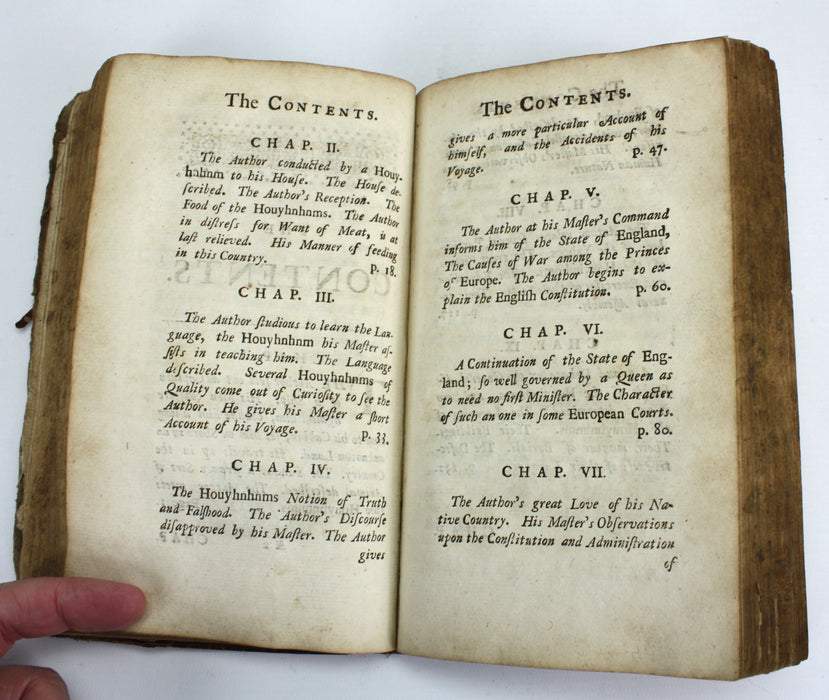 The CONTENTS.
CHAP. II.
The Author conducted by a Houy-
hnhnm to his House. The House de-
ſcribed. The Author's Reception. The
Food of the Houyhnhnms. The Author
in diſtreſs for Want of Meat, is at
laſt relieved. His Manner of feeding
in this Country. p. 18.
CHAP. III.
The Author ſtudious to learn the Lan-
guage, the Houyhnhnm his Maſter aſ-
ſiſts in teaching him. The Language
deſcribed. Several Houyhnhnms of
Quality come out of Curioſity to ſee the
Author. He gives his Maſter a ſhort
Account of his Voyage. p. 33.
CHAP. IV.
The Houyhnhnms Notion of Truth
and Falſhood. The Author's Diſcourſe
diſapproved by his Maſter. The Author
gives
The CONTENTS.
gives a more particular Account of
himſelf, and the Accidents of his
Voyage. p. 47.
CHAP. V.
The Author at his Maſter's Command
informs him of the State of England,
The Cauſes of War among the Princes
of Europe. The Author begins to ex-
plain the Engliſh Conſtitution. p. 60.
CHAP. VI.
A Continuation of the State of Eng-
land; ſo well governed by a Queen as
to need no firſt Miniſter. The Character
of ſuch an one in ſome European Courts.
p. 80.
CHAP. VII.
The Author's great Love of his Na-
tive Country. His Maſter's Obſervations
upon the Conſtitution and Adminiſtration
of